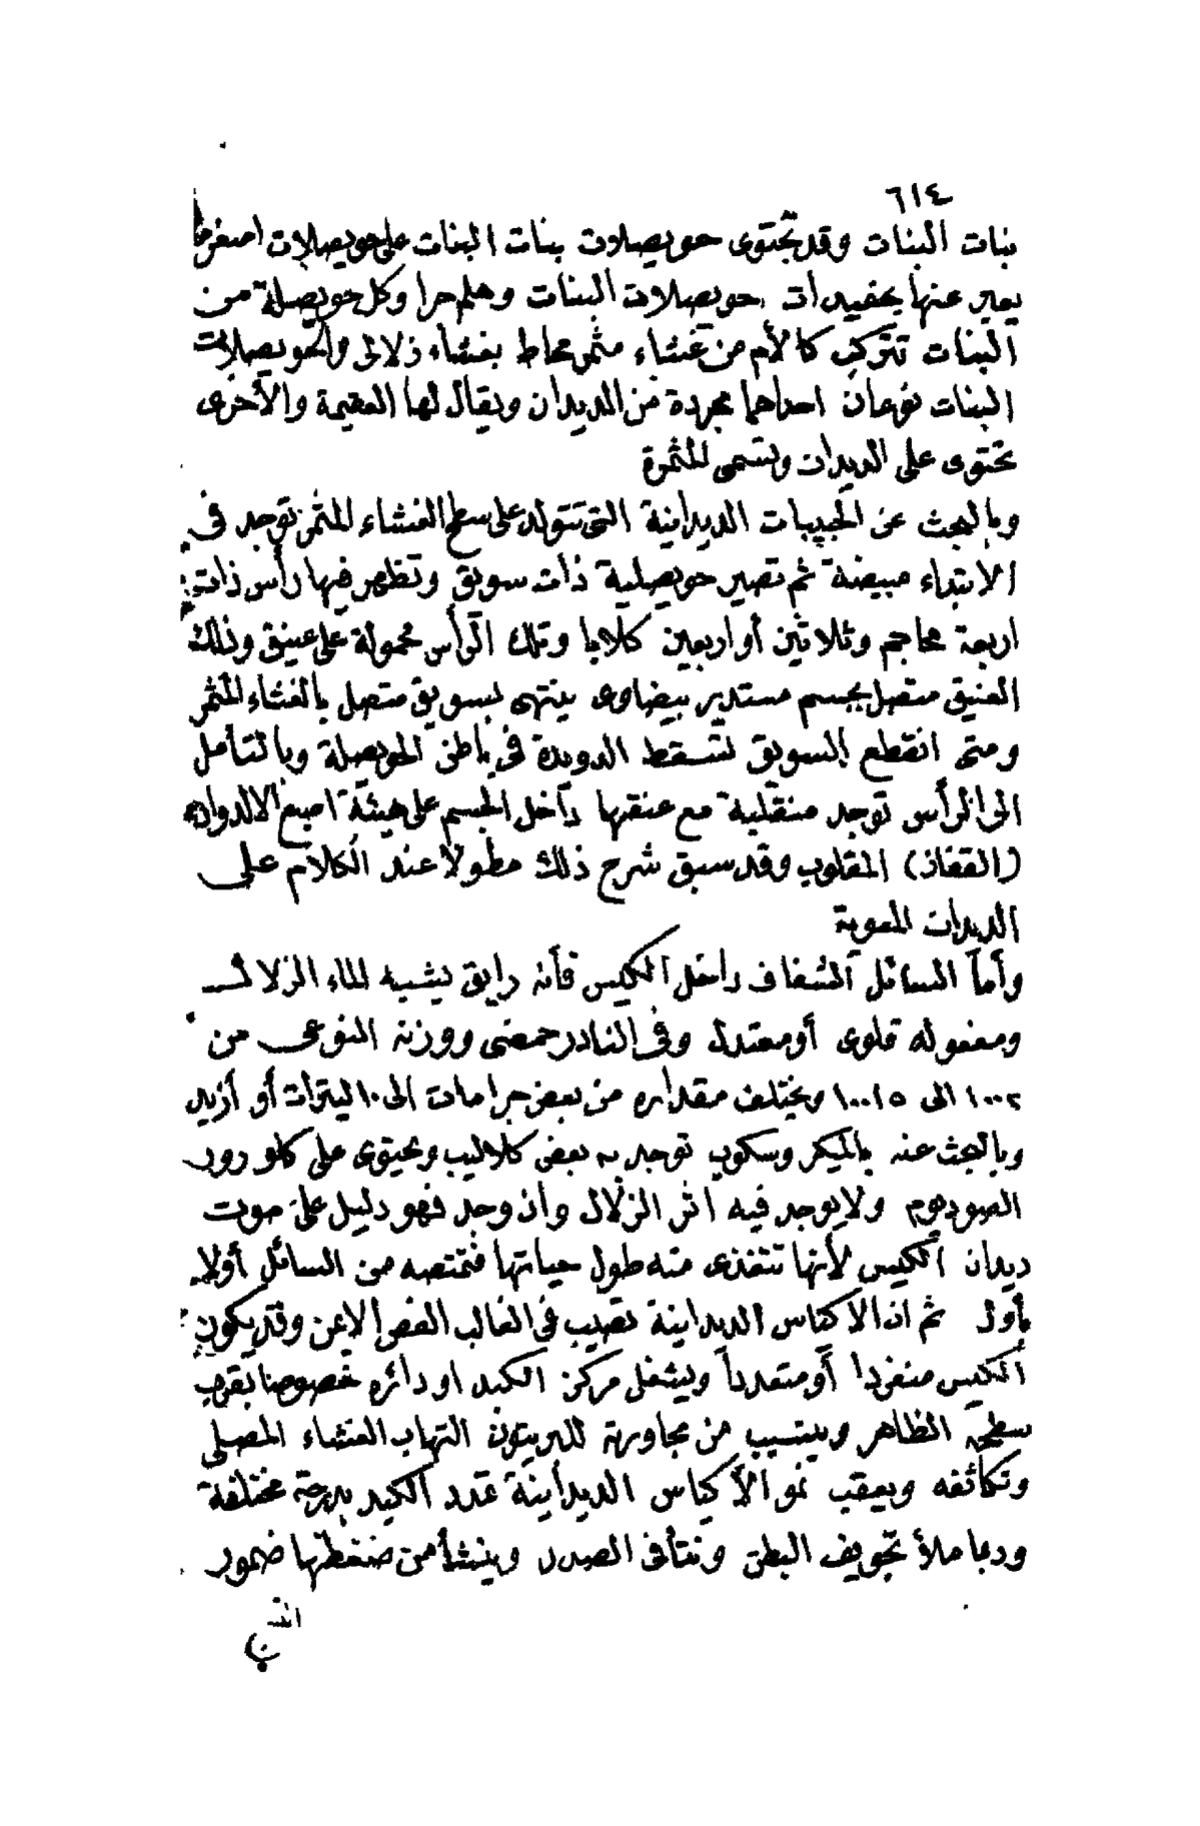 ٦١٤
بنات البنات وقد تحتوى حويصلات بنات البنات على حويصلات اصغرها
يعبر عنها بحفيدات حويصلات البنات وهلم جرا وكل حويصلة من
البنات تتركب كالأم من غشاء مثمر محاط بغشاء زلالى والحويصلات
البنات نوعان احداهما مجردة من الديدان ويقال لها العقيمة والأخرى
تحتوى على الديدان وتسمى المثمرة
وبالبحث عن الحبيبات الديدانية التى تتولد على سطح الغشاء المثمر توجد فى
الابتداء مبيضة ثم تصير حويصلية ذات سويق وتظهر فيها رأس ذات
اربعة محاجم وثلاثين أو اربعين كلابا وتلك الرأس محمولة على عنيق وذلك
العنيق متصل بجسم مستدير بيضاوى ينتهى بسويق متصل بالغشاء المثمر
ومتى انقطع السويق تسقط الدويدة فى باطن الحويصلة وبالتأمل
الى الرأس توجد منقلبة مع عنقها داخل الجسم على هيئة اصبع الالدوان
(القفاز) المقلوب وقد سبق شرح ذلك مطولا عند الكلام على
الديدان المعوية
وأما السائل الشفاف داخل الكيس فأنه رايق يشبه الماء الزلالى
ومفعوله قلوى أو معتدل وفى النادر حمضى ووزنه النوعى من
١٠٠٢ الى ١٠٠١٥ ويختلف مقداره من بعض جرامات الى ١٠ ليترات أو أزيد
وبالبحث عنه بالميكروسكوب توجد به بعض كلاليب ويحتوى على كلورور
الصوديوم ولا يوجد فيه اثر الزلال وان وجد فهو دليل على موت
ديدان الكيس لأنها تتغذى منه طول حياتها فتمتصه من السائل أولا
بأول ثم ان الاكياس الديدانية تصيب فى الغالب الفص الايمن وقد يكون
الكيس منفردا أو متعددا ويشغل مركز الكبد او دائره خصوصا بقرب
سطحه الظاهر ويتسبب من مجاورته للبريتون التهاب الغشاء المصلى
وتكاثفه ويعقب نمو الأكياس الديدانية تمدد الكبد بدرجة مختلفة
وربما ملأ تجويف البطن ونتأ فى الصدر وينشأ من ضغطها ضمور